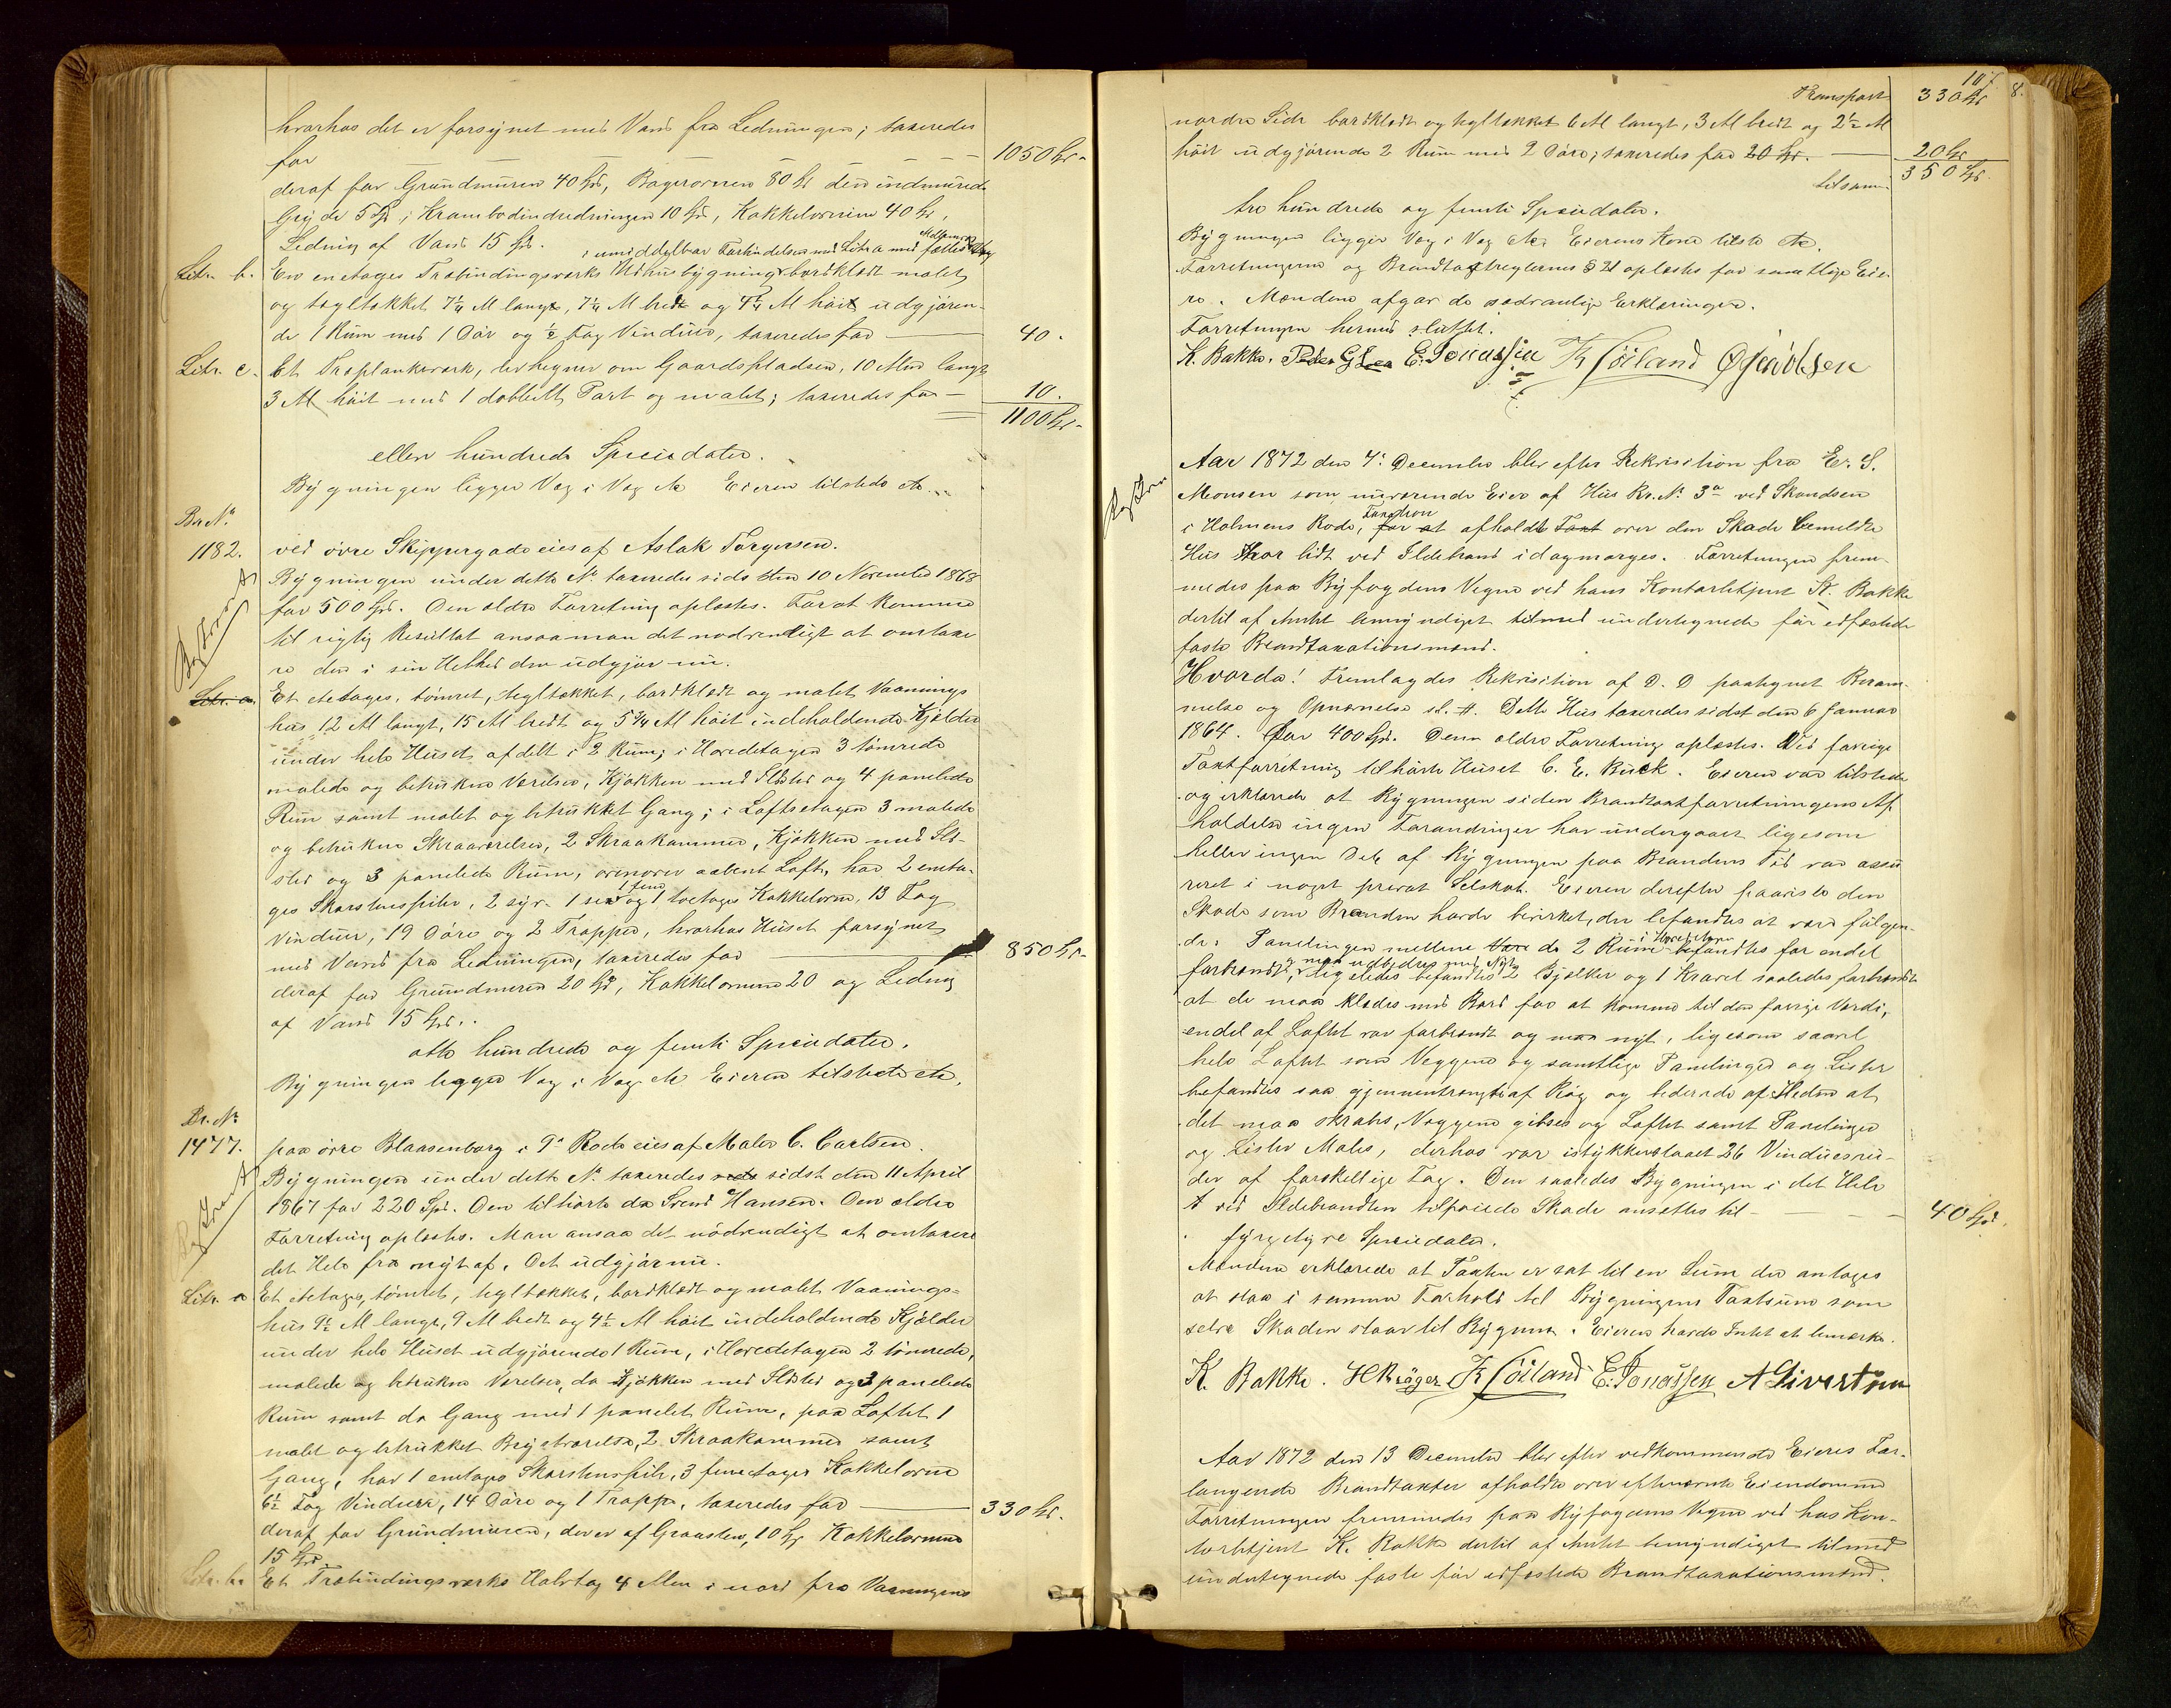 hvorhos det er forsynet med Vand fra Ledningen; taxeredes
for — — — — — — — 1050 Spd.
deraf for Grundmuren 40 Spd, Bagerovnen 80 Spd den indmurede
Gryde 5 Spd, Krambodindredningen 10 Spd, Kakkelovnene 40 Spd,
Ledning af Vand 15 Spd. i umiddelbar Forbindelse med Litr a med fælles
Litr. b. En enetages Træbindingsværks Udhusbygning bordklædt malet
og tægltækket 7¼ Al langt, 7¼ Al bredt og 4¼ Al høit udgjøren-
de 1 Rum med 1 Dør og ½ Fag Vindue, taxeredes for — 40.
Litr. c. Et Træplankeværk, der hegner om Gaardspladsen, 10 Alen langt
3 Al høit med 1 dobbelt Port og malet; taxeredes for — 10.
1100 Spd.
elleve hundrede Speciedaler.
Bygningen ligger Væg i Væg etc Eieren tilstede etc.
Br. №
1182. ved øvre Skippergade eies af Aslak Torgersen.
Bygningen under dette № taxeredes sidst den 10 November 1868
for 500 Spd. Den ældre Forretning oplæstes. For at komme
til rigtig Resultat ansaa man det nødvendigt at omtaxe
re den i sin Helhed den udgjør nu.
Litr. a. Et etetages, tømret, tegltækket, bordklædt og malet Vaanings
hus 12 Al langt, 15 Al bredt og 5¾ Al høit indeholdende Kjælder
under hele Huset afdelt i 2 Rum; i Hovedetagen 3 tømrede
malede og betrukne Værelser, Kjøkken med Ildsted og 4 panelede
Rum samt malet og betrukket Gang; i Loftsetagen 3 malede
og betrukne Skraaværelser, 2 Skraakammer, Kjøkken med Ild-
sted og 3 panelede Rum, ovenover aabent Loft, har 2 eneta-
ges Skorstenspiber, 2 syv- 1 sex og 1 toetages Kakkelovn, 13 Fag
Vinduer, 19 Døre og 2 Trapper, hvorhos Huset forsynet
med Vand fra Ledningen, taxeredes for — 850 Spd.
deraf for Grundmuren 20 Spd, Kakkelovnene 20 og Ledning
af Vand 15 Spd.
otte hundrede og femti Speciedaler.
Bygningen ligger Væg i Væg etc Eieren tilstede etc.
Br. №
1477. paa øvre Blaasenborg i 9de Rode eies af Maler C. Carlsen.
Bygningen under dette № taxeredes sidst den 11 April
1867 for 220 Spd. Den tilhørte da Svend Hansen. Den ældre
Forretning oplæstes. Man ansaa det nødvendigt at omtaxere
det Hele fra nyt af. Det udgjør nu.
Litr. a Et etetages, tømret, tegltækket, bordklædt og malet Vaanings-
hus 9½ Al langt, 9 Al bredt og 4½ Al høit indeholdende Kjælder
under hele Huset udgjørende 1 Rum, i Hovedetagen 2 tømrede,
malede og betrukne Værelser, do Kjøkken med Ildsted og 3 panelede
Rum samt do Gang med 1 panelet Rum, paa Loftet 1
malet og betrukket Brystværelse, 2 Skraakammer samt
Gang, har 1 enetages Skorstenspibe, 3 fireetages Kakkelovne
6½ Fag Vinduer, 14 Døre og 1 Trappe, taxeredes for — 330 Spd.
deraf for Grundmuren, der er af Graasten, 10 Spd Kakkelovnene
15 Spd
Litr. b. Et Træbindingsværks Halvtag 4 Alen i nord fra Vaaningens
107 8.
Transport 330 Spd
nordre Side bordklædt og tegltækket 6 Al langt, 3 Al bredt og 2½ Al
høit udgjørende 2 Rum med 2 Døre; taxeredes for 20 Spd. — 20 Spd
tilsamm. 350 Spd.
tre hundrede og femti Speciedaler.
Bygningen ligger Væg i Væg etc. Eierens Kone tilste etc.
Forretningerne og Brandtaxtreglernes § 21 oplæstes for samtlige Eie-
re. Mændene afgav de sædvanlige Erklæringer.
Forretningen hermed sluttet.
K. Bakke. E. Jonassen K Lölland O Jacobsen
Aar 1872 den 4de December blev efter Rekvisition fra Er. S.
Monsen som nuværende Eier af Hus Br. № 3a ved Skandsen
i Holmens Rode, Taxation for at afholdt Taxt over den Skade bemeldte
Hus har lidt ved Ildebrand idagmorges. Forretningen frem-
medes paa Byfogdens Vegne ved hans Kontorbetjent K. Bakke
dertil af Amtet bemyndiget tilmed undertegnede fire edfæstede
faste Brandtaxationsmænd.
Hvorda! Fremlagdes Rekvisition af D. D paategnet Beram-
melse og Opnævnelse sl. A. Dette Hus taxeredes sidst den 6 Januar
1864. for 400 Spd. Denne ældre Forretning oplæstes. Ved forrige
Taxtforretning tilhørte Huset C. E. Buck. Eieren var tilstede
og erklærede at Bygningen siden Brandtaxtforretningens Af-
holdelse ingen Forandringer har undergaaet ligesom
heller ingen Del af Bygningen paa Brandens Tid var assu
reret i noget privat Selskab. Eieren derefter paaviste den
Skade som Branden havde bevirket, der befandtes at være følgen-
de: Panelingen mellem de 2 Rum i Hovedetagen befandtes for endel
forbrændt, og maa udbedres med Nyt, ligeledes befandtes 2 Bjælker og 1 Kravel saaledes forbrændt
at de maa klædes med Bord for at komme til den forrige Værdi,
endel af Loftet var forbrændt og maa nyt, ligesom saavel
hele Loftet som Væggene og samtlige Panelinger og Lister
befandtes saa gjennemtrængte af Røg og bedærvede af Heden at
det maa skrabes, Væggene gibses og Loftet samt Panelinger
og Lister Males, derhos var istykkerslaaet 26 Vinduesru-
der af forskellige Fag. Den saaledes Bygningen i det Hele
t ved Ildebranden tilføiede Skade ansættes til — — — 40 Spd.
fyrgetyve Speciedaler.
Mændene erklærede at Taxten er sat til en Sum der antages
at staa i samme Forhold til Bygningens Taxtsum som
selve Skaden staar til Bygning. Eieren havde Intet at bemærke.
K. Bakke. H Kröger K Lölland E. Jonassen A Sivertsen
Aar 1872 den 13 December blev efter vedkommende Eieres For-
langende Brandtaxter afholdte over efternævnte Eiendomme
Forretningen fremmedes paa Byfogdens Vegne ved hos Kon-
torbetjent K. Bakke dertil af Amtet bemyndiget tilmed
undertegnede faste fire edfæstede Brandtaxationsmænd.